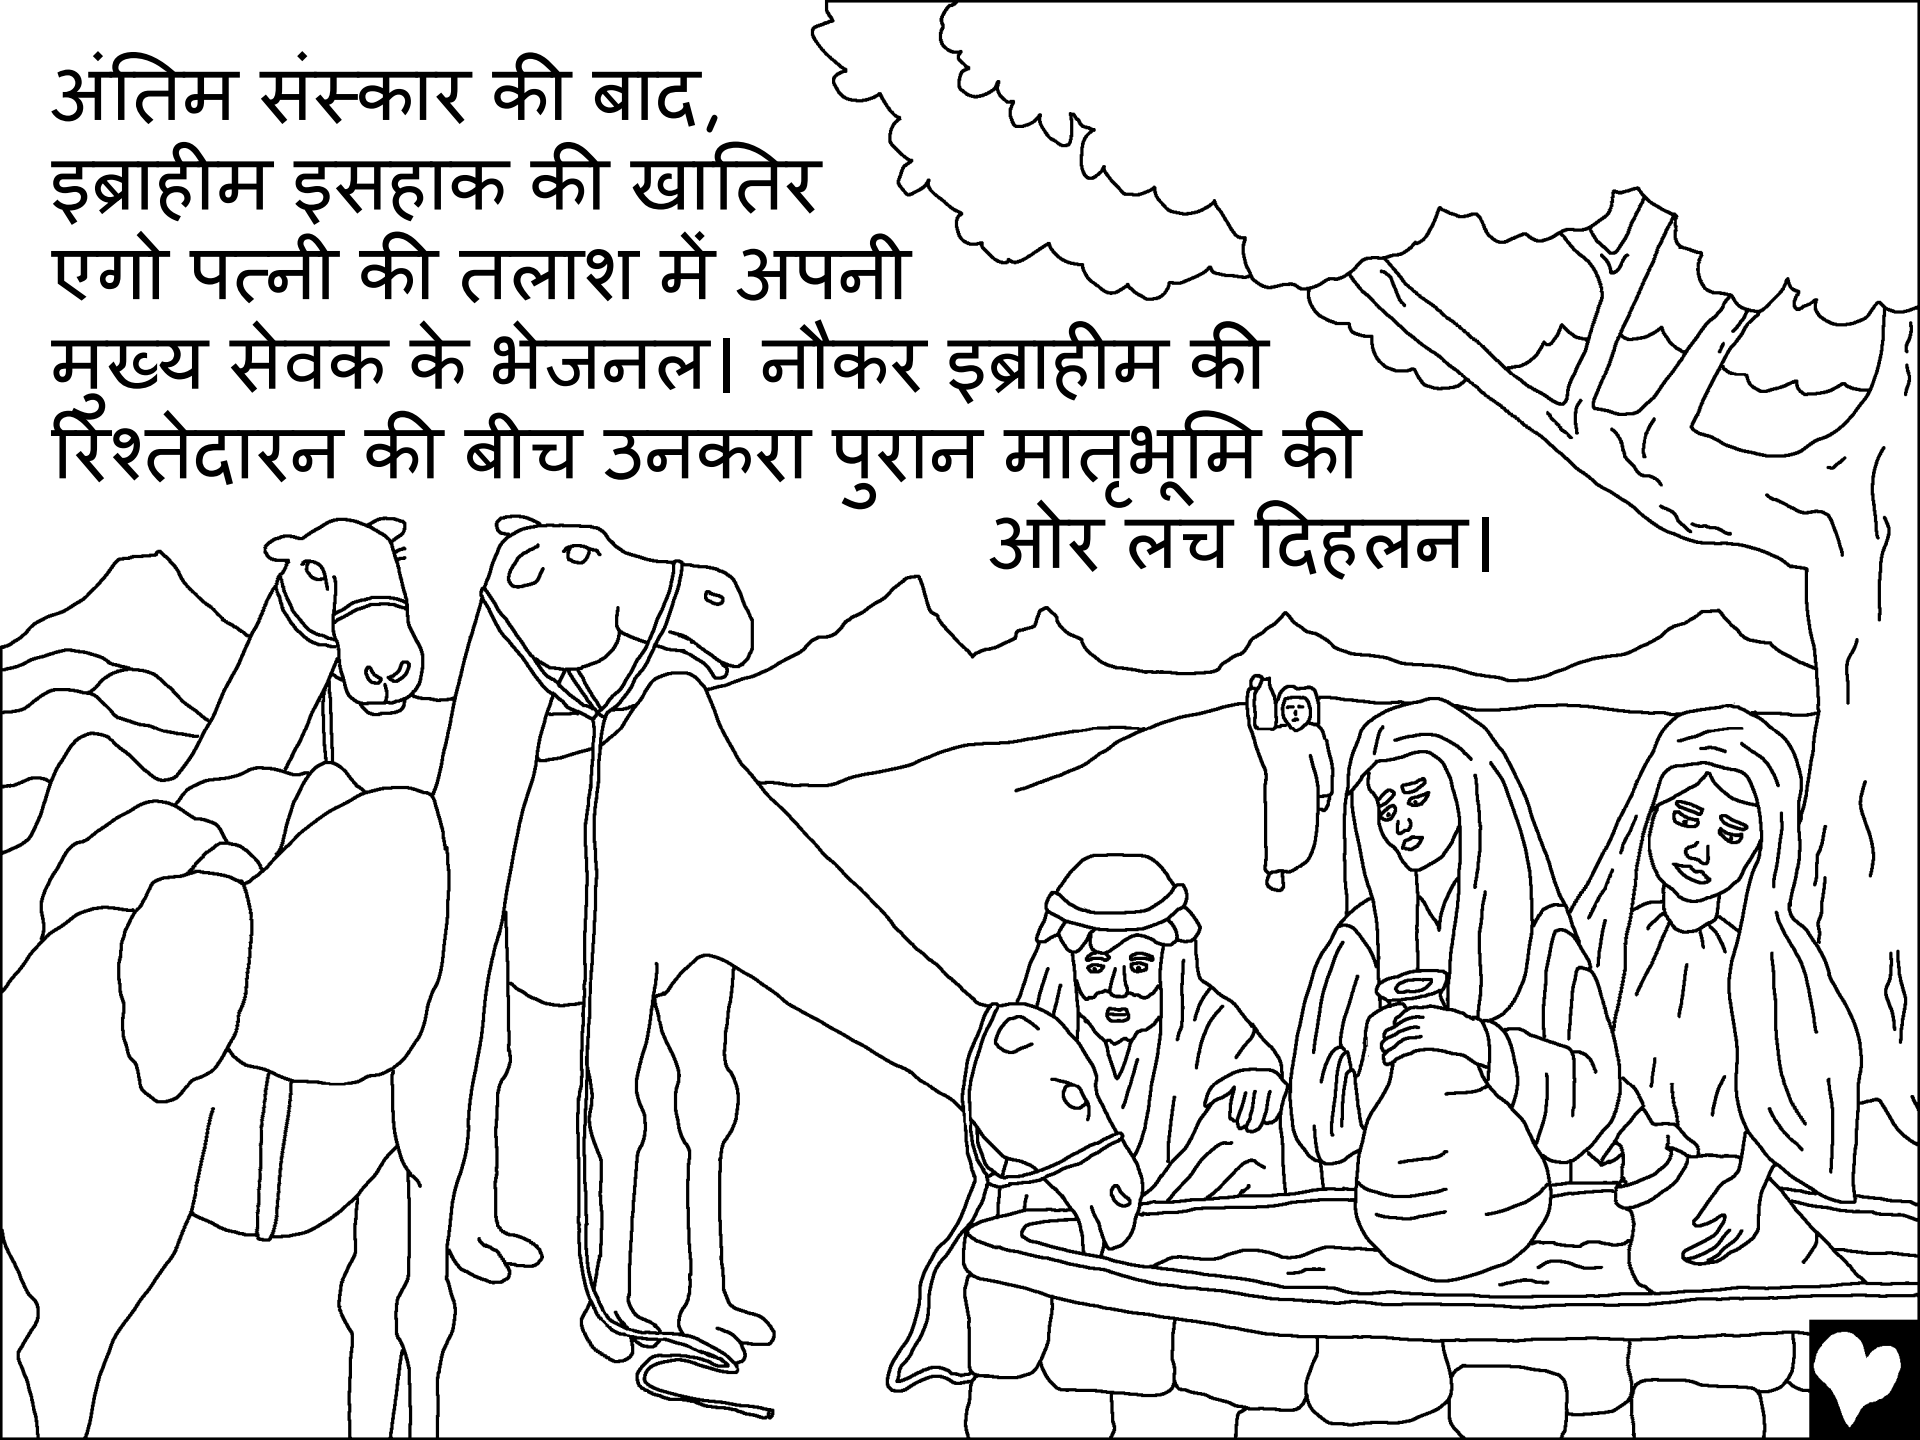 अंतिम संस्कार की बाद,
इब्राहीम इसहाक की खातिर
एगो पत्नी की तलाश में अपनी
मुख्य सेवक के भेजनल। नौकर इब्राहीम की
रिश्तेदारन की बीच उनकरा पुरान मातृभूमि की
ओर लच दिहलन।